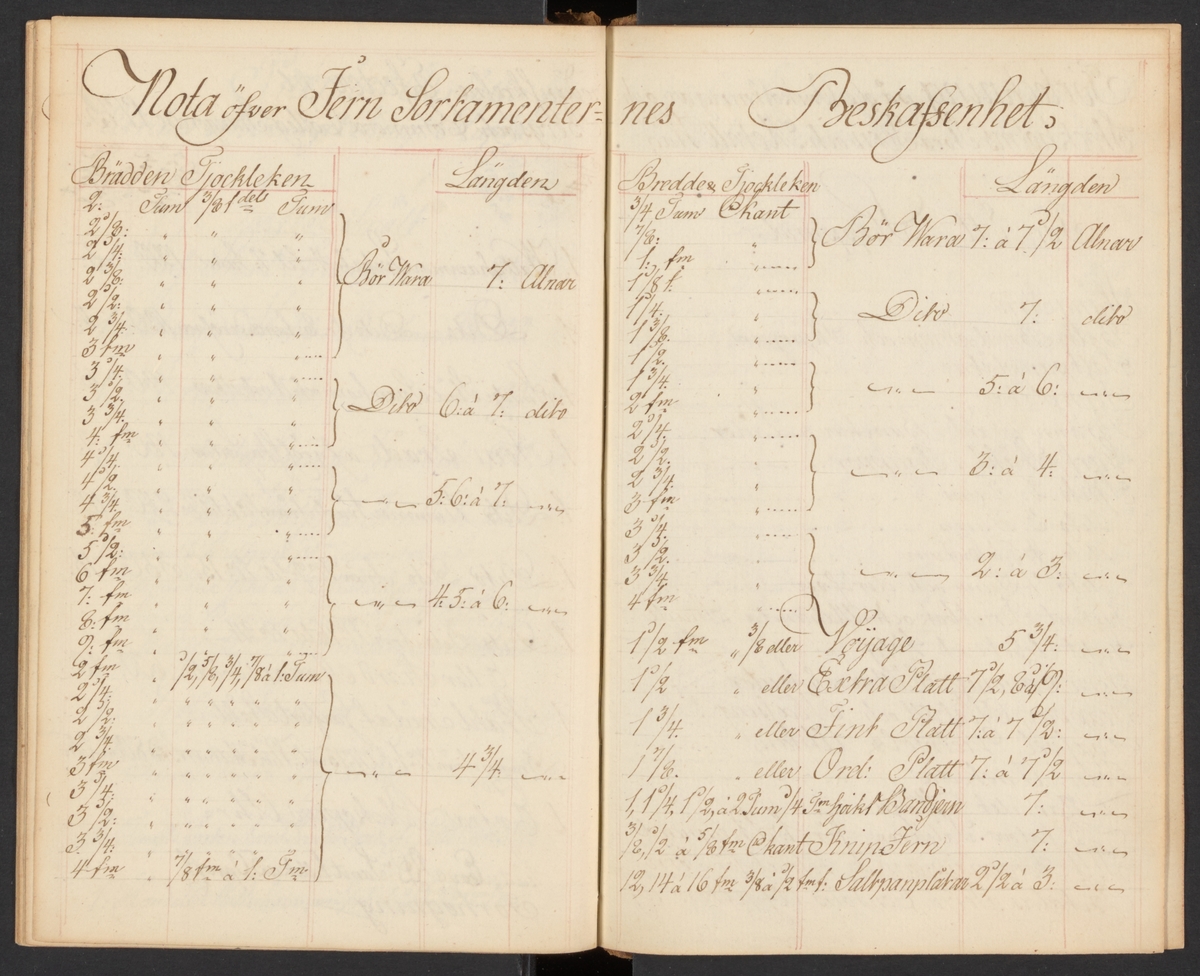 Nota öfver Jern Sortamenter=
Brädden Tjockleken Längden
2: Tum 3/8 f dels Tum
2 1/8: " " "
2 1/4: " " "
2 3/8: " " " Bör Wara 7: Alnar
2 1/2: " " "
2 3/4: " " "
3 fm " " "
3 1/4: " " "
3 1/2: " " " Dito 6: á 7: dito
3 3/4: " " "
4: fm " " "
4 1/4: " " "
4 1/2: " " "
4 3/4: " " " —"— 5: 6: á 7: —"—
5: fm " " "
5 1/2: " " "
6 fm " " "
7: fm " " " —"— 4: 5: á 6: —"—
8: fm " " "
9: fm " " "
2 fm 1/2, 5/8, 3/4, 7/8 á 1: Tum
2 1/4: " " " " " "
2 1/2: " " " " " "
2 3/4: " " " " " "
3 fm " " " " " " —"— 4 3/4 —"—
3 1/4: " " " " " "
3 1/2: " " " " " "
3 3/4: " " " "
4 fm 7/8 fm á 1: Tm
nes Beskaffenhet;
Bredd & Tjockleken Längden
3/4 Tum Ckant
7/8: " Bör Wara 7: á 7 1/2 Alnar
1: fm "
1 1/8 f. "
1 1/4: " Dito 7: dito
1 3/8. "
1 1/2. "
1 3/4: " —"— 5: á 6: —"—
2 fm "
2 1/4. "
2 1/2. "
2 3/4. " —"— 3: á 4: —"—
3 fm "
3 1/4. "
3 1/2. "
3 3/4 " —"— 2: á 3: —"—
4 fm "
1 1/2 fm " 3/8 eller Voyage 5 3/4: —"—
1 1/2 " eller Extra Platt 7 1/2, 8 á 9: —"—
1 3/4. " eller Fint Platt 7: á 7 1/2: —"—
1 7/8. " eller Ord: Platt 7: á 7 1/2 —"—
1, 1 1/4, 1 1/2, á 2 Tum 1/4 Tm tjokt Bandjern 7: —"—
3/8, 1/2 á 5/8 fm Ckant Knip Jern 7: —"—
12, 14 á 16 fm 3/8 á 1/2 fm f: Saltpanplåtar 2 1/2 á 3: —"—